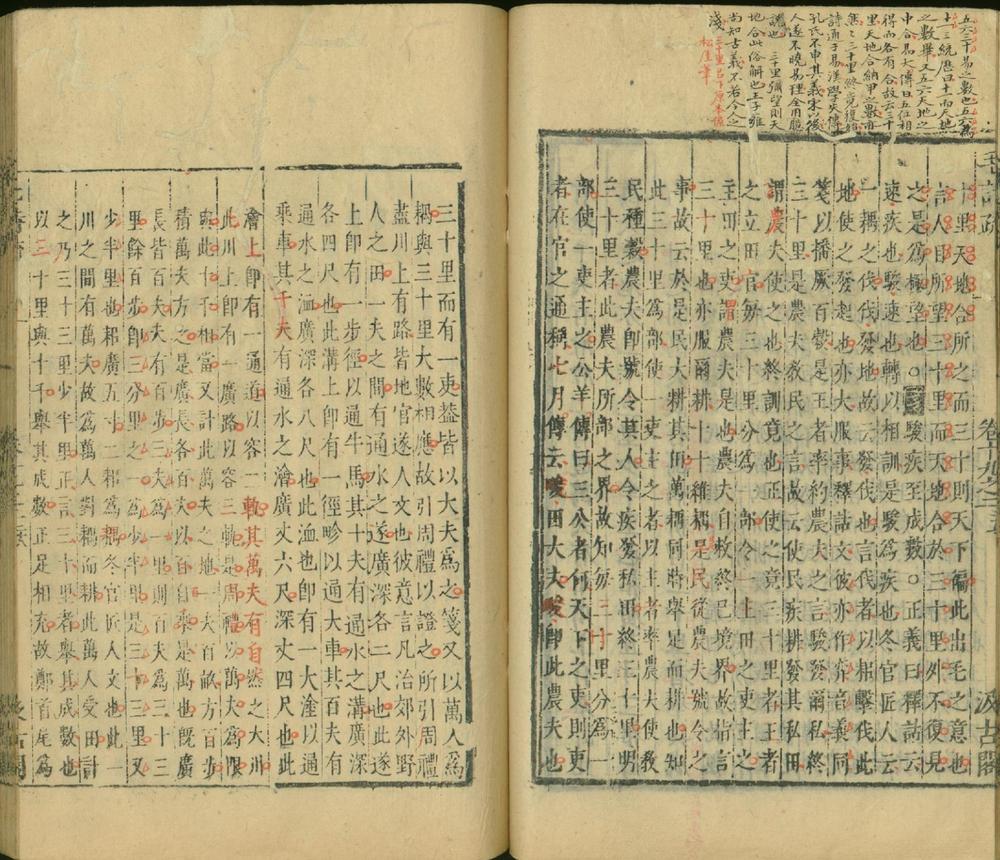 五六三十易之數也五六爲
十一三統歷曰十一而天地
之數畢又五六天地之
中合易大傳曰五位相
得而各有合故云三十
里天地合納甲之數亦
三十里終竟復始
詩通于易漢學失傳
孔氏不申其義宋以後
人遂不曉易理全用臆
說也三十里彌望則天
地合此俗解也王子雍
尚知古義不若今人之
淺
松崖筆
十里天地合所之而三十則天下徧此出毛之意也
言人目所望三十里而天地合於三十里外不復見
之是爲極望也○駿疾至成數○正義曰釋詁云
速疾也駿速也轉以相訓是駿爲疾也冬官匠人云
一耦之伐伐發地故云發伐也言伐者以耜擊伐此
地使之發起也亦大服事釋詁文彼亦作射音義同
箋以播厥百穀是王者率約農夫之言駿發爾私終
三十里是農夫敎民之言故云使民疾耕發其私田
謂農夫使之也終訓竟也正使之竟三十里者王者
之立田官每三十里分爲一部令一主田之吏主之
主田之吏謂農夫是也農夫自敕終已境界故指言
三十里也亦服爾耕十千維耦是民從農夫號令之
事故云於是民大耕其田萬耦同時舉足而耕也
此三十里爲部使一吏主之者以主者率農夫使敎
民種穀農夫卽號令其人令疾發私田終三十里明
三十里者此農夫所部之界故知每三十里分爲一
部使一吏主之公羊傳曰三公者何天下之吏則吏
者在官之通稱七月傳云畯田大夫畯卽此農夫也
卷十九之二
汲古閣
三十里而有一吏葢皆以大夫爲之箋又以萬人爲
耦與三十里大數相應故引周禮以證之所引周禮
盡川上有路皆地官遂人文也彼意言凡治郊外野
人之田一夫之間有通水之遂廣深各二尺也此遂
上卽有一步徑以通牛馬其十夫有通水之溝廣深
各四尺也此溝上卽有一徑畛以通大車其百夫有
通水之洫廣深各八尺也此洫也卽有一大塗以通
乘車其千夫有通水之澮廣丈六尺深丈四尺也此
澮上卽有一通道以容二軌其萬夫有自然之大川
此川上卽有一廣路以容三軌是周禮以萬夫爲限
與此十千相當又計此萬夫之地一夫百畝方百步
積萬夫方之是廣長各百夫以百自乘是萬也旣廣
長皆百夫夫有百步三夫爲一里則百夫爲三十三
里餘百步卽三分里之一爲少半里是三十三里又
少半里也耜廣五寸二耜爲耦冬官匠人文也此一
川之間有萬夫故爲萬人對耦而耕此萬人受田計
之乃三十三里少半里正言三十里者舉其成數也
以三十里與十千舉其成數正足相充故鄭首尾爲